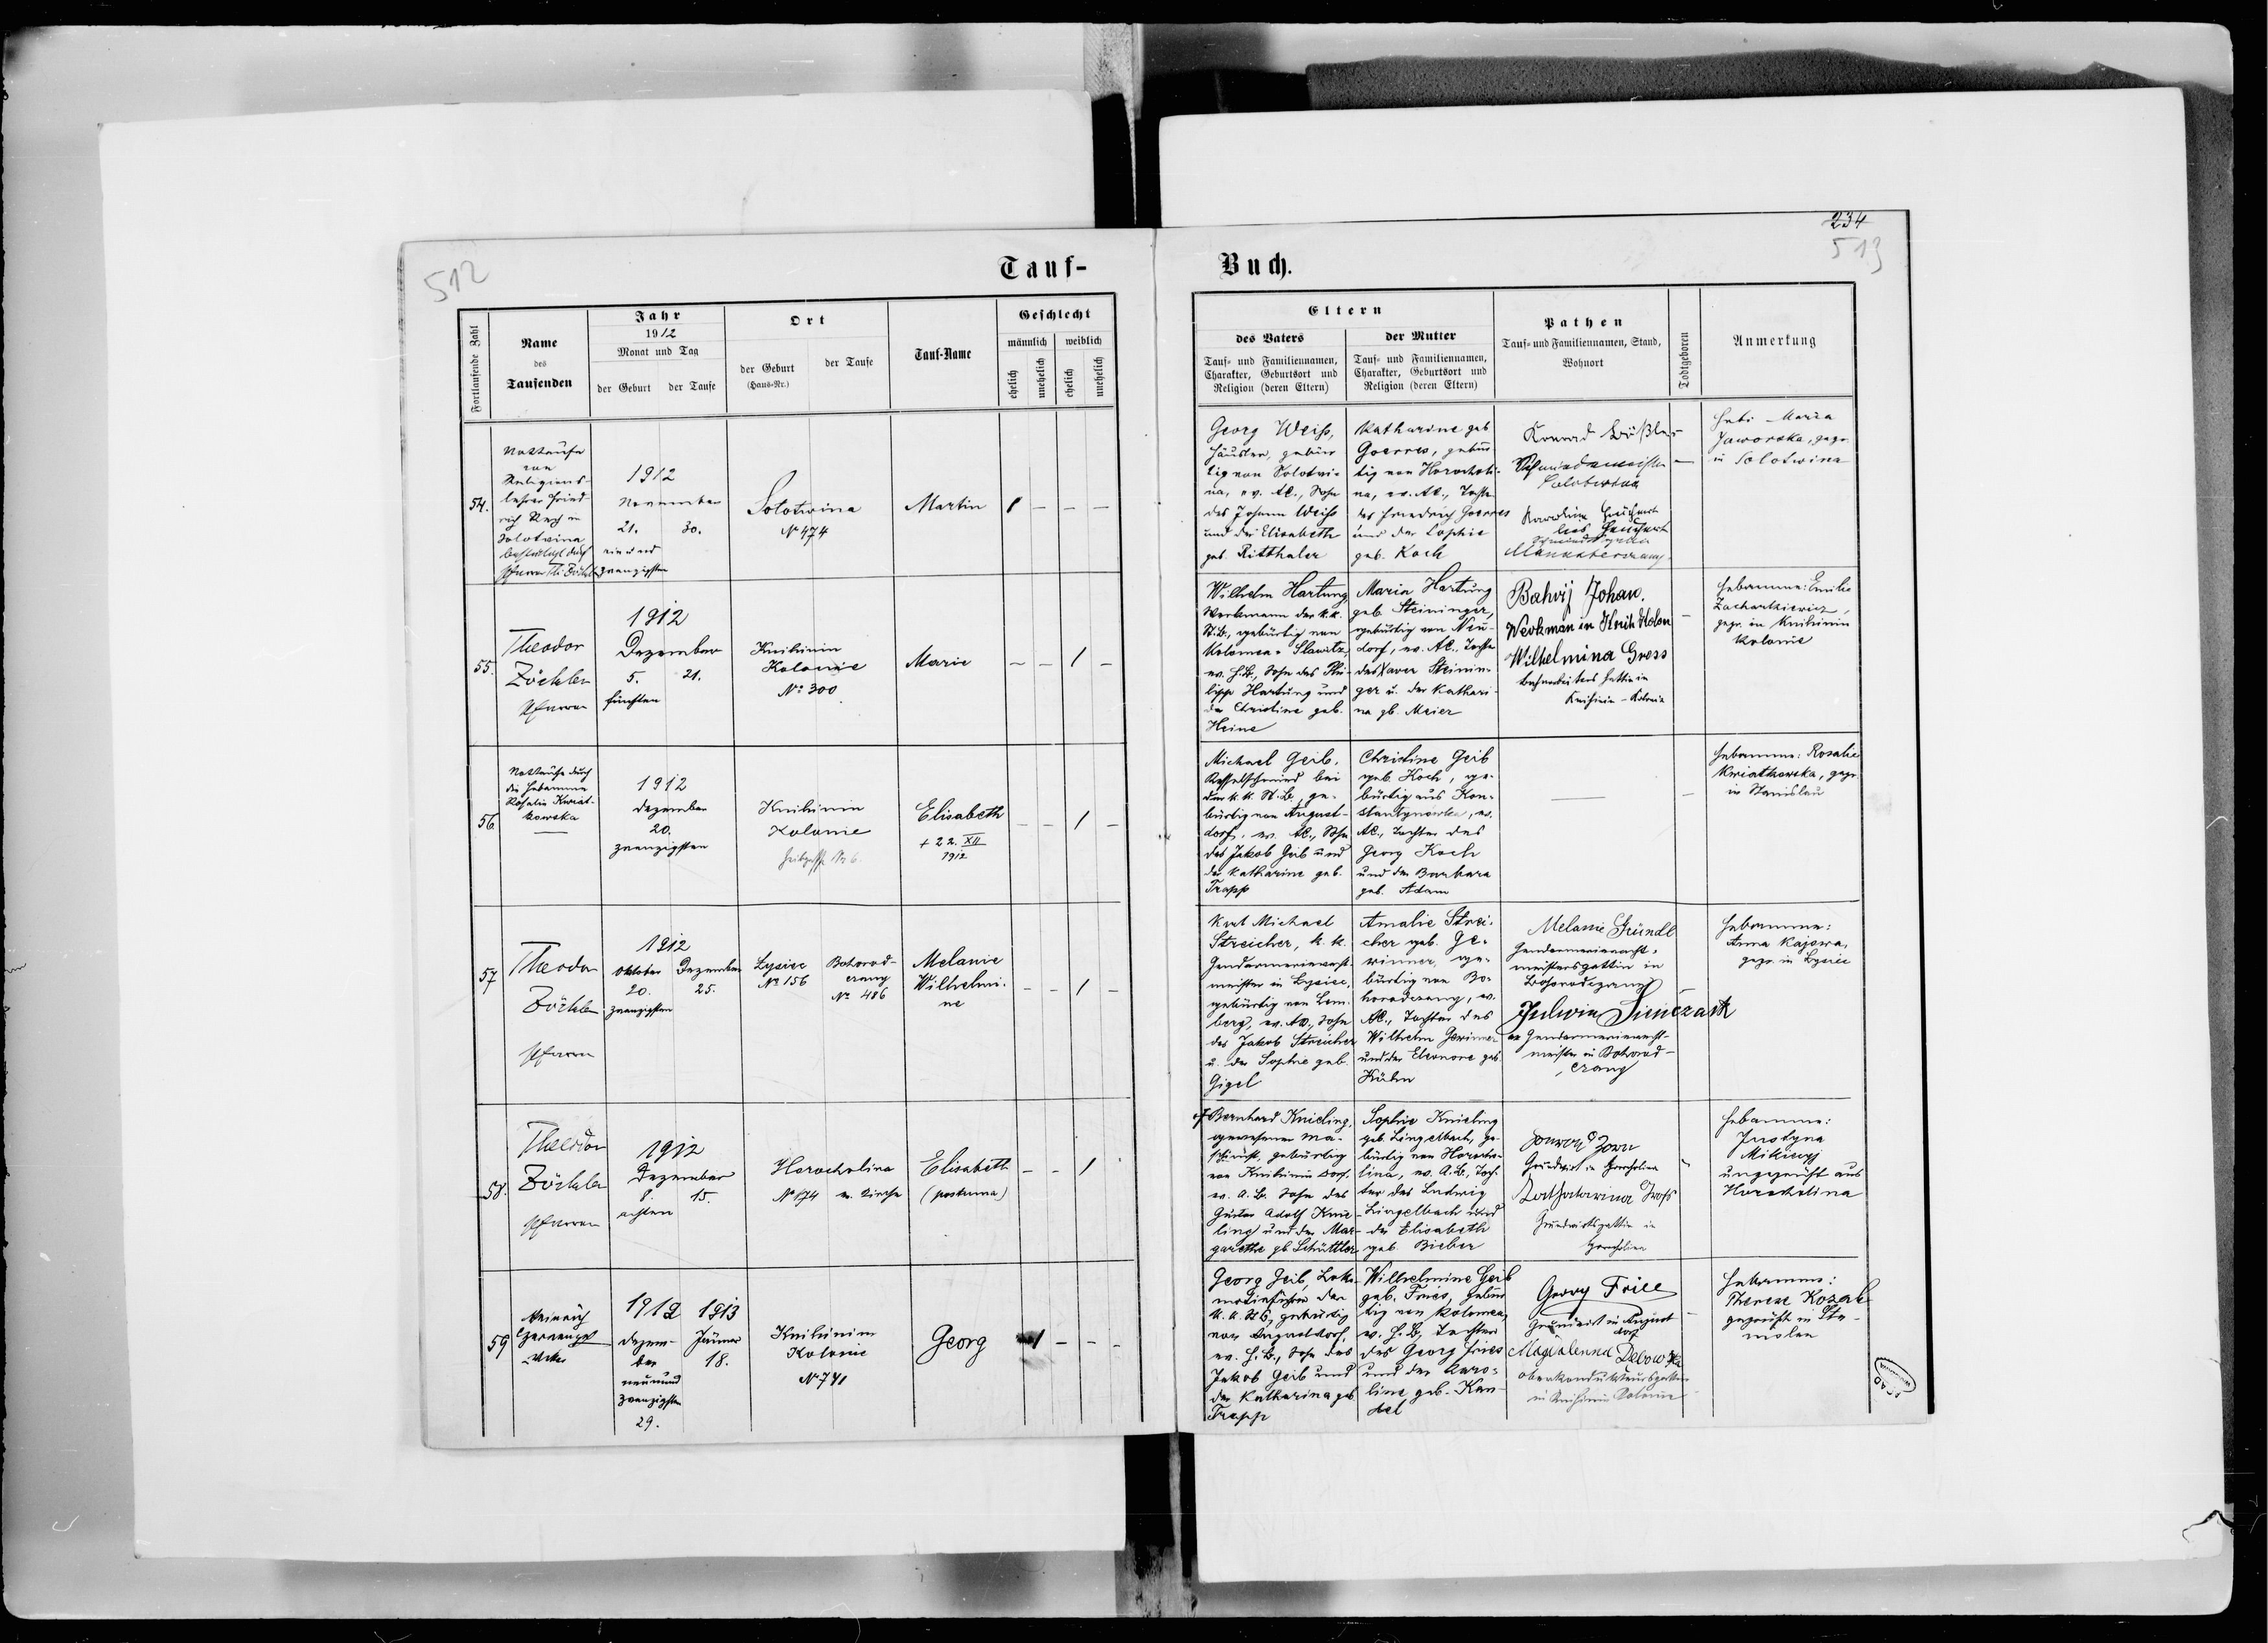 512
Tauf-
Fortlaufende Zahl
Name
des
Taufenden
Jahr
1912
Monat und Tag
der Geburt
der Taufe
Ort
der Geburt
(Haus-Nr.)
der Taufe
Tauf-Name
Geschlecht
männlich
weiblich
ehelich
unehelich
ehelich
unehelich
54.
Nottaufe
von
Religions-
lehrer Fried-
rich Rech in
Solotwina
1912
November
21. 30.
ein und
zwanzigsten
Solotwina
Nº 474
Martin
1 – – –
55.
Theodor
Zöckler
Pfarrer
1912
Dezember
5. 21.
fünften
Knihinin
Kolonie
Nº 300
Marie
– – 1 –
56
Nottaufe durch
die Hebamme
Rosalie Kwiat-
kowska
1912
Dezember
20.
zwanzigsten
Knihinin
Kolonie
Elisabeth
+ 22. XII
1912
– – 1 –
57
Theodor
Zöckler
Pfarrer
1912
Oktober Dezember
20. 25.
zwanzigsten
Lysiec
Nº 156
Bohorod-
czany
Nº 486
Melanie
Wilhelmi-
ne
– – 1 –
58.
Theodor
Zöckler
Pfarrer
1912
Dezember
8. 15.
achten
Horocholina
Nº 174 ev. Kirche
Elisabeth
(postuma)
– – 1
59
Heinrich
Vikar
1912 1913
Dezem- Jänner
ber 18.
neunund
zwanzigsten
29.
Knihinin
Kolonie
Nº 741
Georg
1 – – –
234
513
Buch.
Eltern
des Vaters
Tauf- und Familiennamen,
Charakter, Geburtsort und
Religion (deren Eltern)
der Mutter
Tauf- und Familiennamen,
Charakter, Geburtsort und
Religion (deren Eltern)
Pathen
Tauf- und Familiennamen, Stand,
Wohnort
Todtgeboren
Anmerkung
Georg Weiss,
Häusler, gebür-
tig von Solotwi-
na, ev. AC., Sohn
des Johann Weiss
und der Elisabeth
geb. Ritthaler
Katharine geb
Goerres, gebür-
tig von Horocholi-
na, ev. AC., Tochter
des Friedrich Goerres
und der Sophie
geb. Koch
Konrad
Schmiedemeister
Solotwina
Karoline
Heb: Maria
Jaworska, gepr.
in Solotwina
Wilhelm Hartung
Werkmann der k.k.
St.B., gebürtig von
Kolomea-Slawitz,
ev. H.B., Sohn des Phi-
lipp Hartung und
der Christine geb.
Heine
Maria Hartung
geb. Steininger,
gebürtig von Neu-
dorf, ev. AC., Tochter
des Xaver Steinin-
ger u. der Kathari-
na gb. Meier
Johan.
Werkman in Knih Kolon
Wilhelmina Gress
Knihinin - Kolonie
Hebamme: Emilie
Zachartkiewicz,
gepr. in Knihinin
Kolonie
Michael Geib,
Kesselschmied bei
der k.k. St.B., ge-
bürtig von August-
dorf, ev. AC., Sohn
des Jakob Geib und
der Katharine geb.
Trapp
Christine Geib
geb. Koch, ge-
bürtig aus Kon-
stantynowka, ev.
AC., Tochter des
Georg Koch
und der Barbara
geb. Adam
Hebamme: Rosalie
Kwiatkowska, gepr.
in Stanislau
Karl Michael
Streicher, k.k.
Gendarmeriewacht-
meister in Lysiec,
gebürtig von Lem-
berg, ev. AB., Sohn
des Jakob Streicher
u. der Sophie geb.
Gigel
Amalie Strei-
cher geb. Ge-
winner, ge-
bürtig von Bo-
horodczany, ev.
AC., Tochter des
Wilhelm Gewinner
und der Eleonore geb.
Kühn
Melanie Gründl
Gendarmeriewacht-
meistersgattin in
Bohorodczany
Gendarmeriewacht-
meister in Bohorod-
czany
Hebamme:
Anna Kajowa,
gepr. in Lysiec
+ Bernhard Knieling,
gewesener Ma-
schinist, gebürtig
von Knihinin Dorf,
ev. A.B. Sohn des
Gustav Adolf Knie-
ling und der Mar-
garethe gb Schüttler
Sophie Knieling
geb. Lingelbach, ge-
bürtig von Horocho-
lina, ev. A.B., Toch-
ter des Ludwig
Lingelbach und
der Elisabeth
geb. Bieber
Grundwirt in Horocholina
Grundwirtsgattin in
Horocholina
Hebamme:
Justyna
Mikicyj
ungeprüft aus
Horocholina
Georg Geib, Loko-
motivführer der
k. k. StB, gebürtig
von Augustdorf,
ev. H.B., Sohn des
Jakob Geib und
der Katharina geb
Trapp
Wilhelmine Geib
geb. Fries, gebür-
tig von Kolomea,
ev. H.B., Tochter
des Georg Fries
und der Karo-
line geb. Kan-
del
Georg
Grundwirt in August
dorf
Magdalenna
Oberkondukteursgattin
in Knihinin Kolonie
Hebamme:
Therese Kozak
geprüft in Sta-
nislau